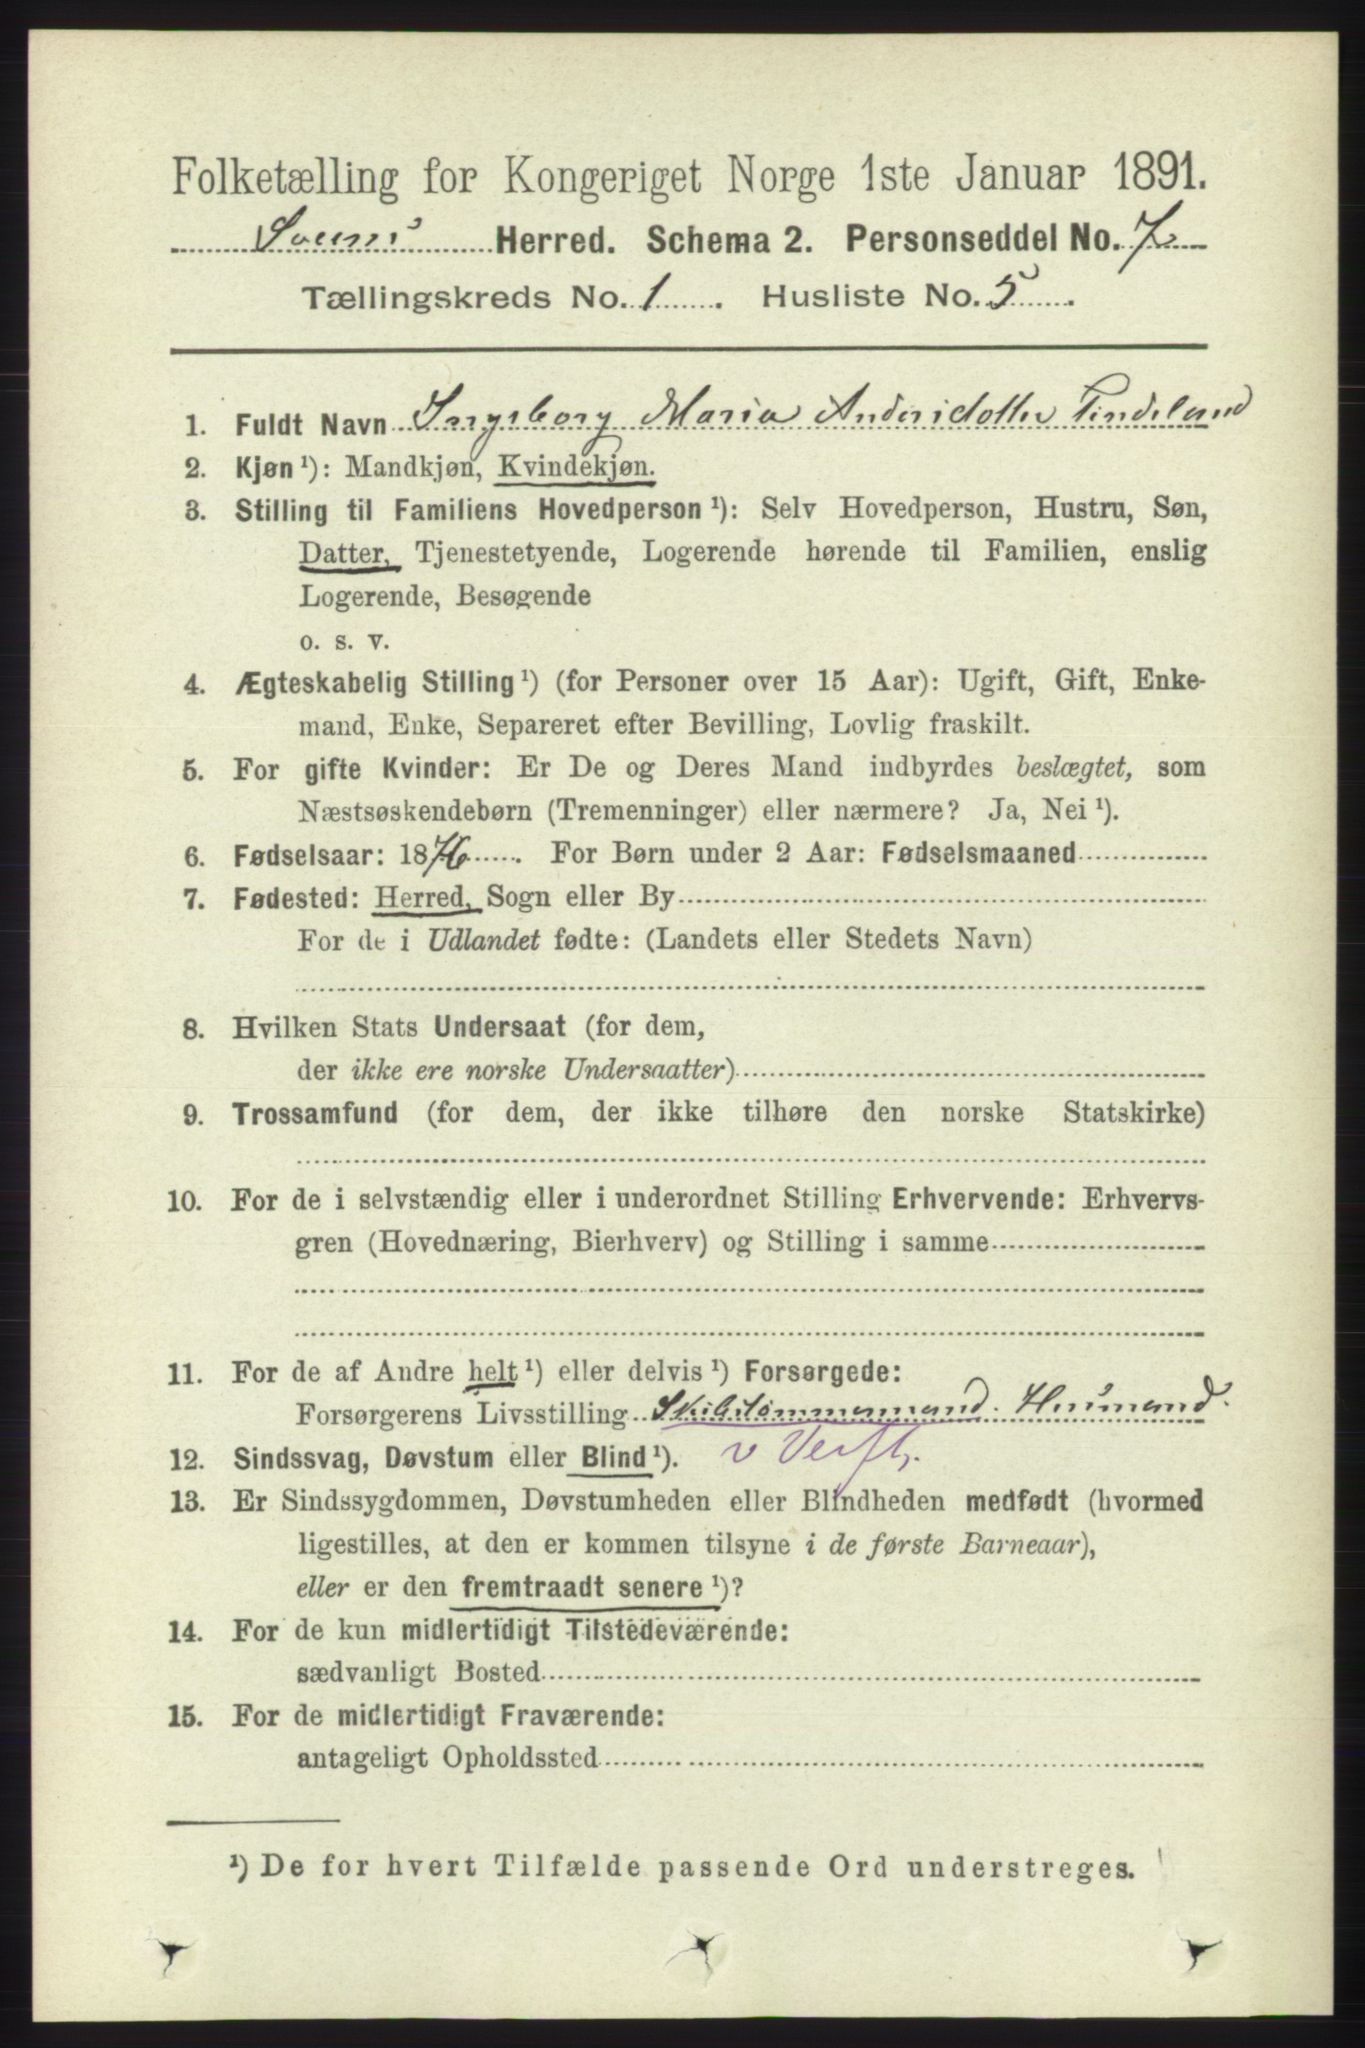 Folketælling for Kongeriget Norge 1ste Januar 1891.
Herred. Schema 2. Personseddel No. 7
Tællingskreds No. 1. Husliste No. 5.
1. Fuldt Navn Ingeborg Maria Andersdotter Tindeland
2. Kjøn ¹): Mandkjøn, Kvindekjøn.
3. Stilling til Familiens Hovedperson ¹): Selv Hovedperson, Hustru, Søn,
Datter, Tjenestetyende, Logerende hørende til Familien, enslig
Logerende, Besøgende
o. s. v.
4. Ægteskabelig Stilling ¹) (for Personer over 15 Aar): Ugift, Gift, Enke-
mand, Enke, Separeret efter Bevilling, Lovlig fraskilt.
5. For gifte Kvinder: Er De og Deres Mand indbyrdes beslægtet, som
Næstsøskendebørn (Tremenninger) eller nærmere? Ja, Nei ¹).
6. Fødselsaar: 1876. For Børn under 2 Aar: Fødselsmaaned
7. Fødested: Herred, Sogn eller By
For de i Udlandet fødte: (Landets eller Stedets Navn)
8. Hvilken Stats Undersaat (for dem,
der ikke ere norske Undersaatter)
9. Trossamfund (for dem, der ikke tilhøre den norske Statskirke)
10. For de i selvstændig eller i underordnet Stilling Erhvervende: Erhvervs-
gren (Hovednæring, Bierhverv) og Stilling i samme
11. For de af Andre helt ¹) eller delvis ¹) Forsørgede:
Forsørgerens Livsstilling Skibstømmermand. Husmand.
12. Sindssvag, Døvstum eller Blind ¹). v Verft.
13. Er Sindssygdommen, Døvstumheden eller Blindheden medfødt (hvormed
ligestilles, at den er kommen tilsyne i de første Barneaar),
eller er den fremtraadt senere ¹)?
14. For de kun midlertidigt Tilstedeværende:
sædvanligt Bosted
15. For de midlertidigt Fraværende:
antageligt Opholdssted
¹) De for hvert Tilfælde passende Ord understreges.